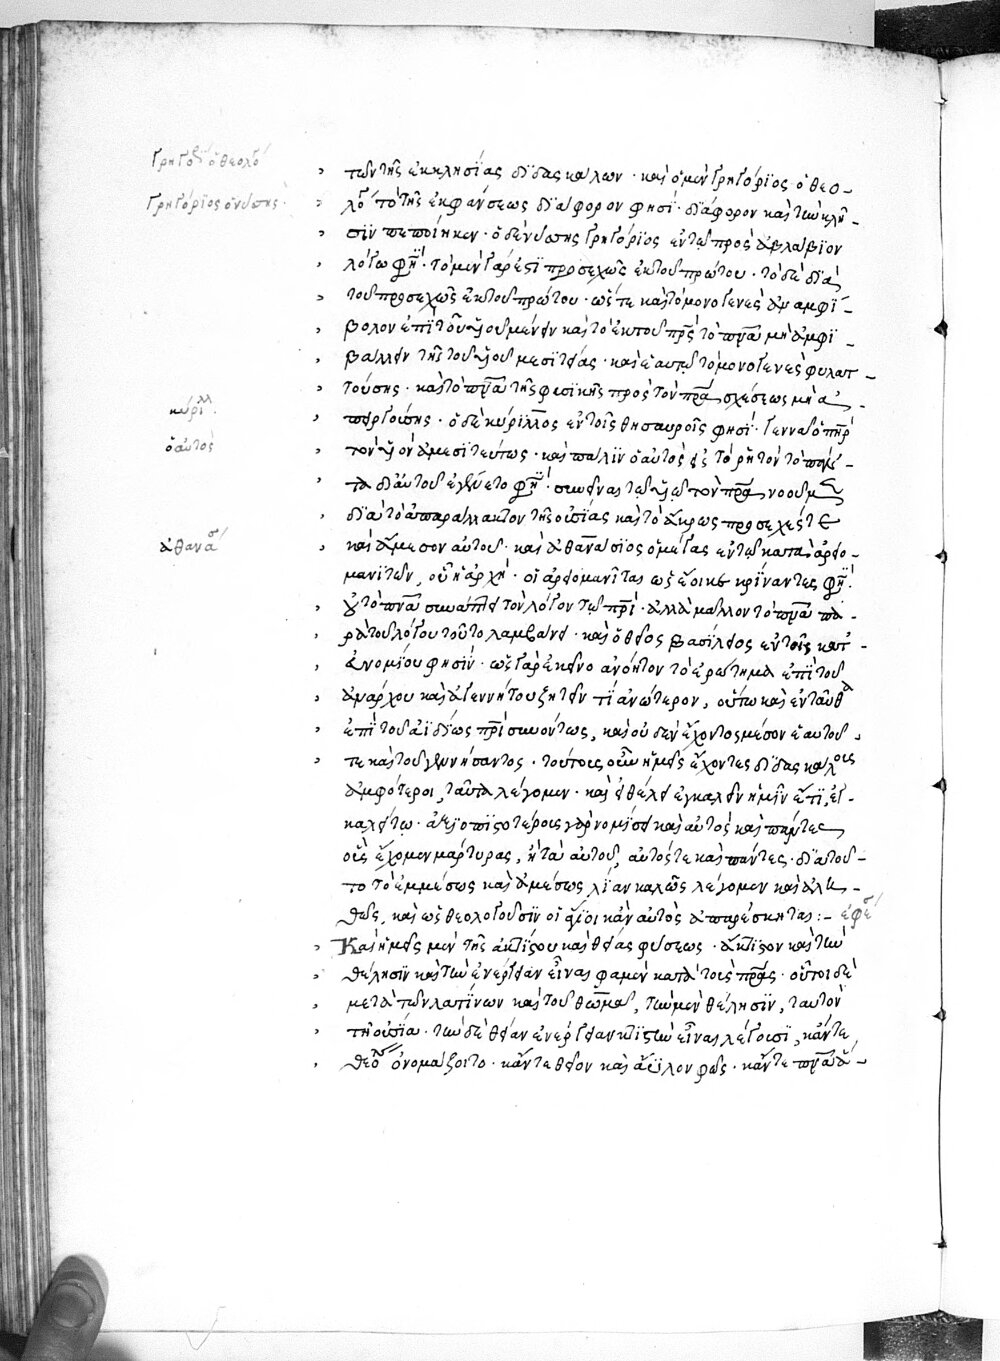 Γρηγο ὁ θεολό
Γρηγόριος ὁ νύσσης
κύριλλ
ὁ αὐτὸς
ἀθανασ
τῶν τῆς ἐκκλησίας διδασκάλων · καὶ ὁ μὲν Γρηγόριος ὁ θεο-
λό τὸ τῆς ἐκφάνσεως διάφορον φησί · διάφορον καὶ τὴν κλῆ-
σιν πεποίηκεν · ὁ δὲ νύσσης Γρηγόριος ἐν τῷ πρὸς ἀβλάβιον
λόγω φη · τὸ μὲν γάρ ἐστι προσεχῶς ἐκ τοῦ πρώτου · τὸ δὲ διὰ
τοῦ προσεχῶς ἐκ τοῦ πρώτου · ὥστε καὶ τὸ μονογενὲς ἀναμφί-
βολον ἐπὶ τοῦ υἱοῦ μένειν καὶ τὸ ἐκ τοῦ πρς τὸ πνα μὴ ἀμφι-
βάλλειν τῆς τοῦ υἱοῦ μεσιτείας · καὶ ἑαυτῷ τὸ μονογενὲς φυλατ-
τούσης · καὶ τὸ πνα τῆς φυσικῆς πρὸς τὸν πρα σχέσεως μὴ ἀ-
πειργούσης · ὁ δὲ κύριλλος ἐν τοῖς θησαυροῖς φησί · γεννᾶ ὁ πηρ
τὸν υἱὸν ἀμεσιτεύτως · καὶ πάλιν ὁ αὐτὸς εἰς τὸ ῥητὸν τὸ πάν-
τα δι αὐτοῦ ἐγένετο φη · συνεῖναι τῷ υἱῷ τὸν πρα νοοῦμεν
διὰ τὸ ἀπαράλλακτον τῆς οὐσίας καὶ τὸ ἄκρως προσεχές τε
καὶ ἄμεσον αὐτοῦ · καὶ ἀθανάσιος ὁ μέγας ἐν τῷ κατὰ ἀρειο-
μανιτῶν, οὗ ἡ ἀρχή · οἱ ἀρειομανῖται ὡς ἔοικε κρίναντες φη ·
οὐ τὸ πνα συνάπτει τὸν λόγον τῷ πρί · ἀλλὰ μᾶλλον τὸ πνα πα-
ρὰ τοῦ λόγου τοῦτο λαμβάνει · καὶ ὁ θεῖος βασίλειος ἐν τοῖς κατ
εὐνομίου φησίν · ὡς γὰρ ἐκεῖνο ἀνόητον τὸ ἐρώτημα ἐπὶ τοῦ
ἀνάρχου καὶ ἀγεννήτου ζητεῖν τί ἀνώτερον, οὕτω καὶ ἐνταῦθα
ἐπὶ τοῦ ἀϊδίως πρὶ συνόντως, καὶ οὐδὲν ἔχοντος μέσον ἑαυτοῦ
τε καὶ τοῦ γεννήσαντος · τούτοις οὖν ἡμεῖς ἔχοντες διδασκάλοις
ἀμφότεροι, ταῦτα λέγομεν · καὶ εἰ θέλει ἐγκαλεῖν ἡμῖν ἔτι, ἐγ-
καλείτω · ἀξιοπιστοτέροις γὰρ νομίσει καὶ αὐτὸς καὶ πάντες
οἷς ἔχομεν μάρτυρας, ἢ τὰ αὐτοῦ, αὐτός τε καὶ πάντες · διὰ τοῦ-
το τὸ ἐμμέσως καὶ ἀμέσως λίαν καλῶς λέγομεν καὶ ἀλη-
θῶς, καὶ ὡς θεολογοῦσιν οἱ ἅγιοι κἂν αὐτὸς ἀπαρέσκηται :- ἐφέσ
Καὶ ἡμεῖς μὲν τῆς ἀκτίστου καὶ θείας φύσεως · ἄκτιστον καὶ τὴν
θέλησιν καὶ τὴν ἐνέργειαν εἶναι φαμὲν κατὰ τοὺς πρας · οὗτοι δὲ
μετὰ τῶν λατίνων καὶ τοῦ θωμᾶ, τὴν μὲν θέλησιν, ταυτὸν
τῇ οὐσίᾳ · τὴν δὲ θείαν ἐνέργειαν κτιστὴν εἶναι λέγουσι, κἄν τε
θεό ὀνομάζοιτο · κἄν τε θεῖον καὶ ἄϋλον φῶς · κἄν τε πνα ἅ-